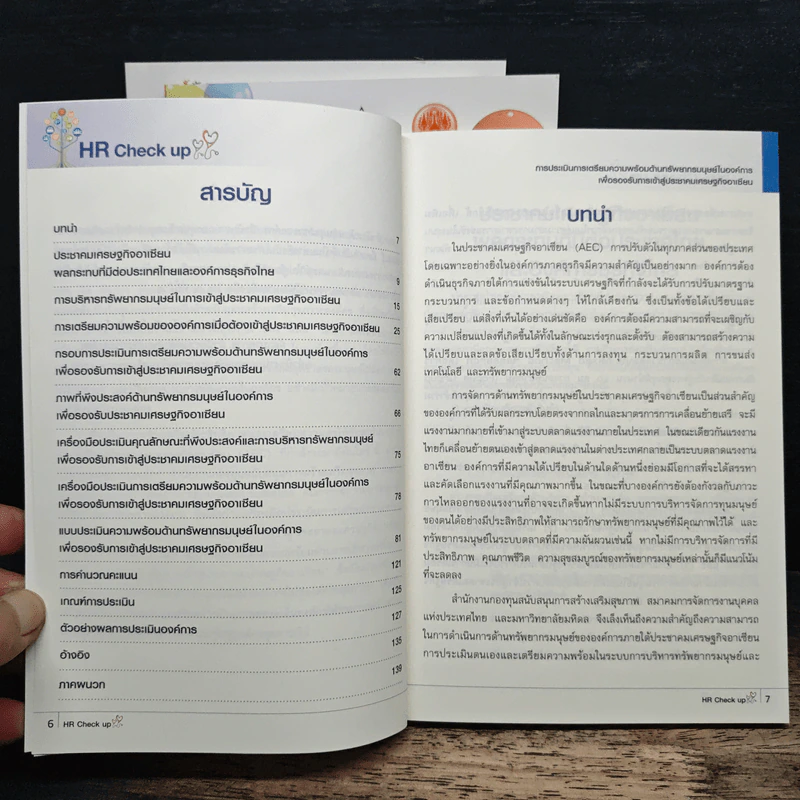 HR Check up
สารบัญ
บทนำ 7
ประชาคมเศรษฐกิจอาเซียน
ผลกระทบที่มีต่อประเทศไทยและองค์การธุรกิจไทย 9
การบริหารทรัพยากรมนุษย์ในการเข้าสู่ประชาคมเศรษฐกิจอาเซียน 15
การเตรียมความพร้อมขององค์การเมื่อต้องเข้าสู่ประชาคมเศรษฐกิจอาเซียน 25
กรอบการประเมินการเตรียมความพร้อมด้านทรัพยากรมนุษย์ในองค์การ
เพื่อรองรับการเข้าสู่ประชาคมเศรษฐกิจอาเซียน 62
ภาพที่พึงประสงค์ด้านทรัพยากรมนุษย์ในองค์การ
เพื่อรองรับประชาคมเศรษฐกิจอาเซียน 66
เครื่องมือประเมินคุณลักษณะที่พึงประสงค์และการบริหารทรัพยากรมนุษย์
เพื่อรองรับการเข้าสู่ประชาคมเศรษฐกิจอาเซียน 75
เครื่องมือประเมินการเตรียมความพร้อมด้านทรัพยากรมนุษย์ในองค์การ
เพื่อรองรับการเข้าสู่ประชาคมเศรษฐกิจอาเซียน 78
แบบประเมินความพร้อมด้านทรัพยากรมนุษย์ในองค์การ
เพื่อรองรับการเข้าสู่ประชาคมเศรษฐกิจอาเซียน 81
การคำนวณคะแนน 121
เกณฑ์การประเมิน 125
ตัวอย่างผลการประเมินองค์การ 127
อ้างอิง 135
ภาคผนวก 139
6 HR Check up
การประเมินการเตรียมความพร้อมด้านทรัพยากรมนุษย์ในองค์การ
เพื่อรองรับการเข้าสู่ประชาคมเศรษฐกิจอาเซียน
บทนำ
ในประชาคมเศรษฐกิจอาเซียน (AEC) การปรับตัวในทุกภาคส่วนของประเทศ
โดยเฉพาะอย่างยิ่งในองค์การภาคธุรกิจมีความสำคัญเป็นอย่างมาก องค์การต้อง
ดำเนินธุรกิจภายใต้การแข่งขันในระบบเศรษฐกิจที่กำลังจะได้รับการปรับมาตรฐาน
กระบวนการ และข้อกำหนดต่างๆ ให้ใกล้เคียงกัน ซึ่งเป็นทั้งข้อได้เปรียบและ
เสียเปรียบ แต่สิ่งที่เห็นได้อย่างเด่นชัดคือ องค์การต้องมีความสามารถที่จะเผชิญกับ
ความเปลี่ยนแปลงที่เกิดขึ้นได้ทั้งในลักษณะเร่งรุกและตั้งรับ ต้องสามารถสร้างความ
ได้เปรียบและลดข้อเสียเปรียบทั้งด้านการลงทุน กระบวนการผลิต การขนส่ง
เทคโนโลยี และทรัพยากรมนุษย์
การจัดการด้านทรัพยากรมนุษย์ในประชาคมเศรษฐกิจอาเซียนเป็นส่วนสำคัญ
ขององค์การที่ได้รับผลกระทบโดยตรงจากกลไกและมาตรการการเคลื่อนย้ายเสรี จะมี
แรงงานมากมายที่เข้ามาสู่ระบบตลาดแรงงานภายในประเทศ ในขณะเดียวกันแรงงาน
ไทยก็เคลื่อนย้ายตนเองเข้าสู่ตลาดแรงงานในต่างประเทศกลายเป็นระบบตลาดแรงงาน
อาเซียน องค์การที่มีความได้เปรียบในด้านใดด้านหนึ่งย่อมมีโอกาสที่จะได้สรรหา
และคัดเลือกแรงงานที่มีคุณภาพมากขึ้น ในขณะที่บางองค์การยังต้องกังวลกับภาวะ
การไหลออกของแรงงานที่อาจจะเกิดขึ้นหากไม่มีระบบการบริหารจัดการทุนมนุษย์
ของตนได้อย่างมีประสิทธิภาพให้สามารถรักษาทรัพยากรมนุษย์ที่มีคุณภาพไว้ได้ และ
ทรัพยากรมนุษย์ในระบบตลาดที่มีความผันผวนเช่นนี้ หากไม่มีการบริหารจัดการที่มี
ประสิทธิภาพ คุณภาพชีวิต ความสุขสมบูรณ์ของทรัพยากรมนุษย์เหล่านั้นก็มีแนวโน้ม
ที่จะลดลง
สำนักงานกองทุนสนับสนุนการสร้างเสริมสุขภาพ สมาคมการจัดการงานบุคคล
แห่งประเทศไทย และมหาวิทยาลัยมหิดล จึงเล็งเห็นถึงความสำคัญถึงความสามารถ
ในการดำเนินการด้านทรัพยากรมนุษย์ขององค์การภายใต้ประชาคมเศรษฐกิจอาเซียน
การประเมินตนเองและเตรียมความพร้อมในระบบการบริหารทรัพยากรมนุษย์และ
HR Check up 7